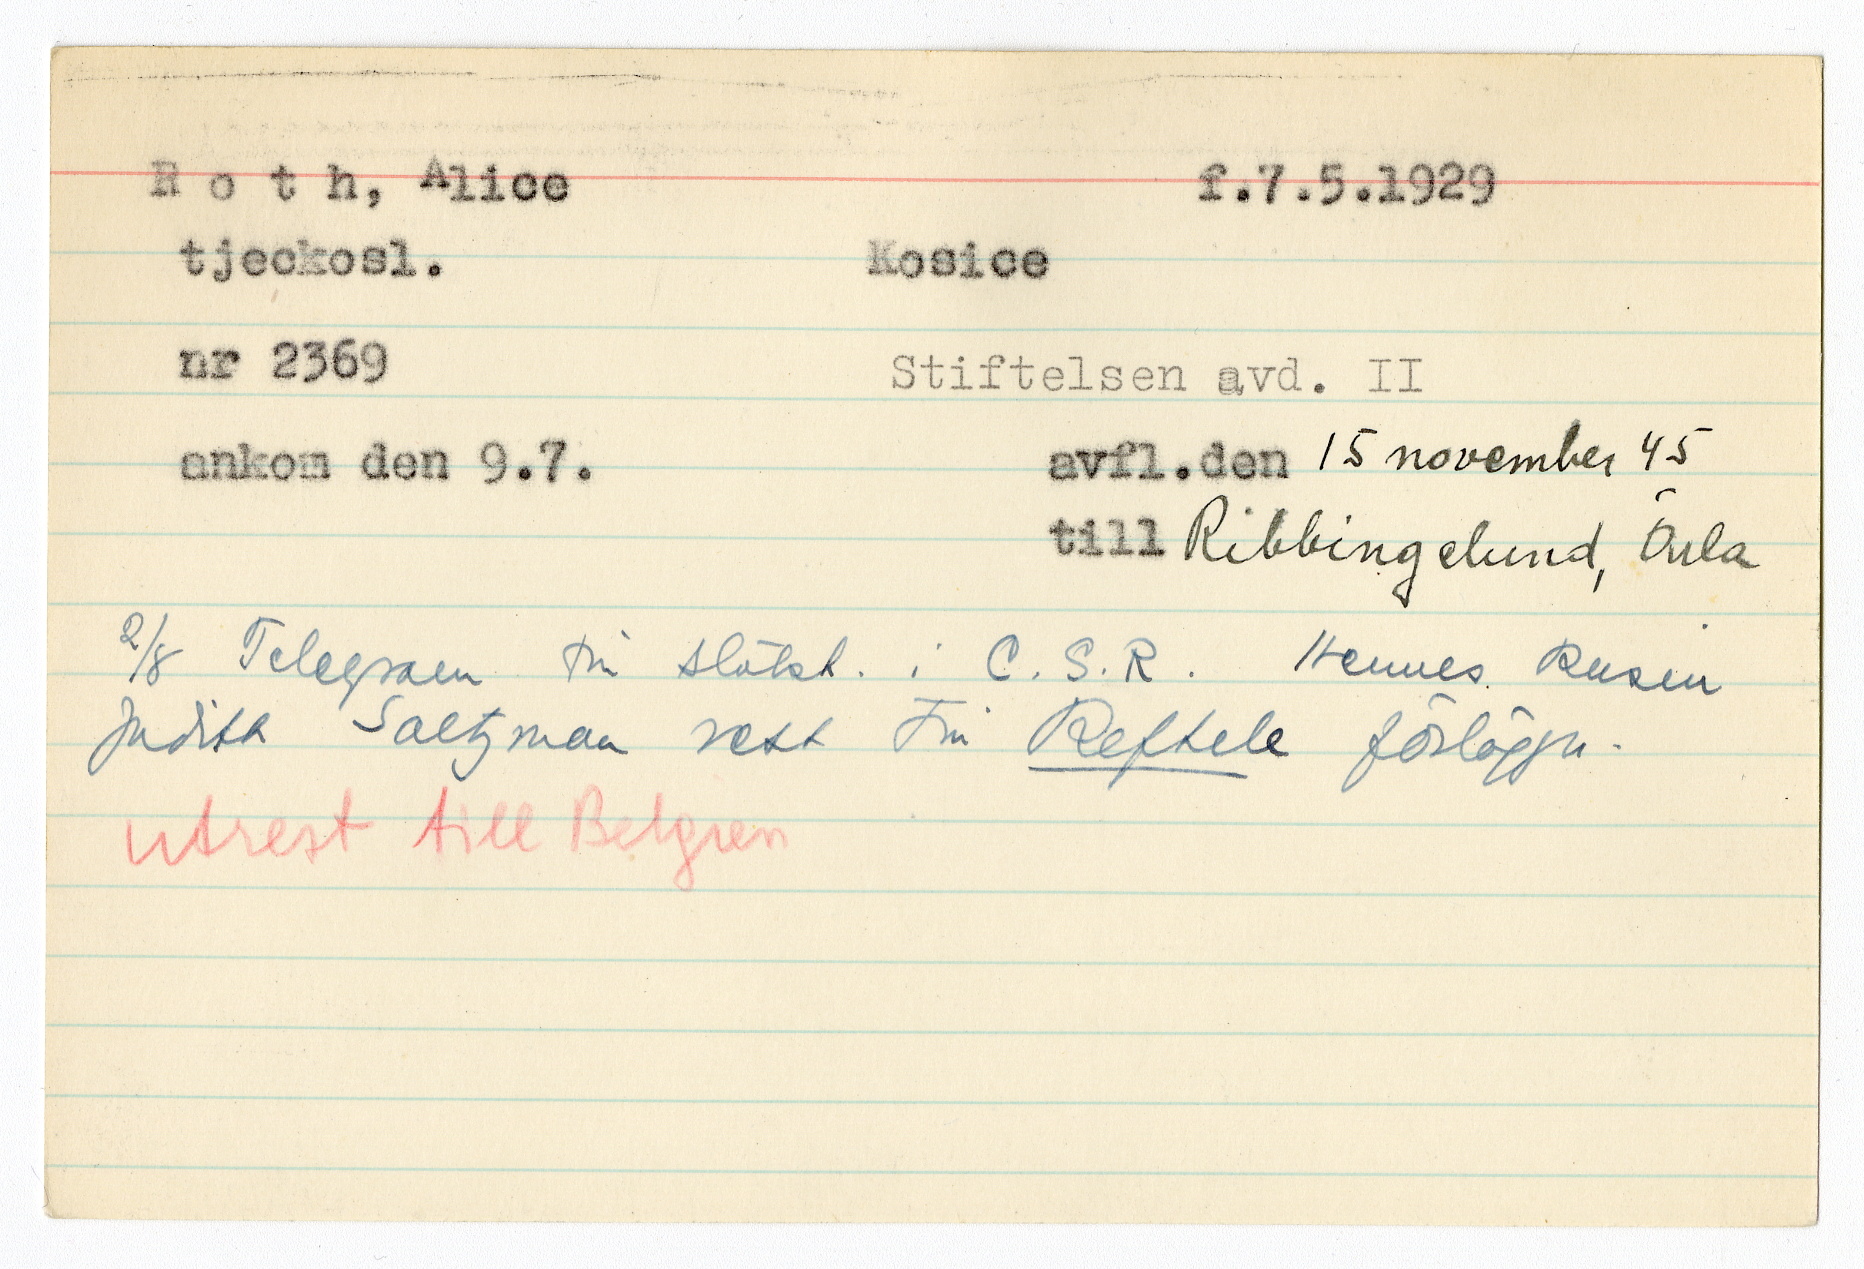 R o t h, Alice f.7.5.1929
tjeckosl. Kosice
nr 2369 Stiftelsen avd. II
ankom den 9.7. avfl.den 15 november 45
till Ribbingelund, Ärla
2/8 Telegram till släkt. i C.S.R. Hennes kusin
Judith Saltzman rest till Reftele förläggn.
utrest till Belgien